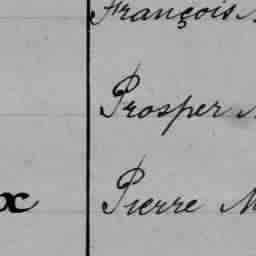 François
Prosper
x Pierre M